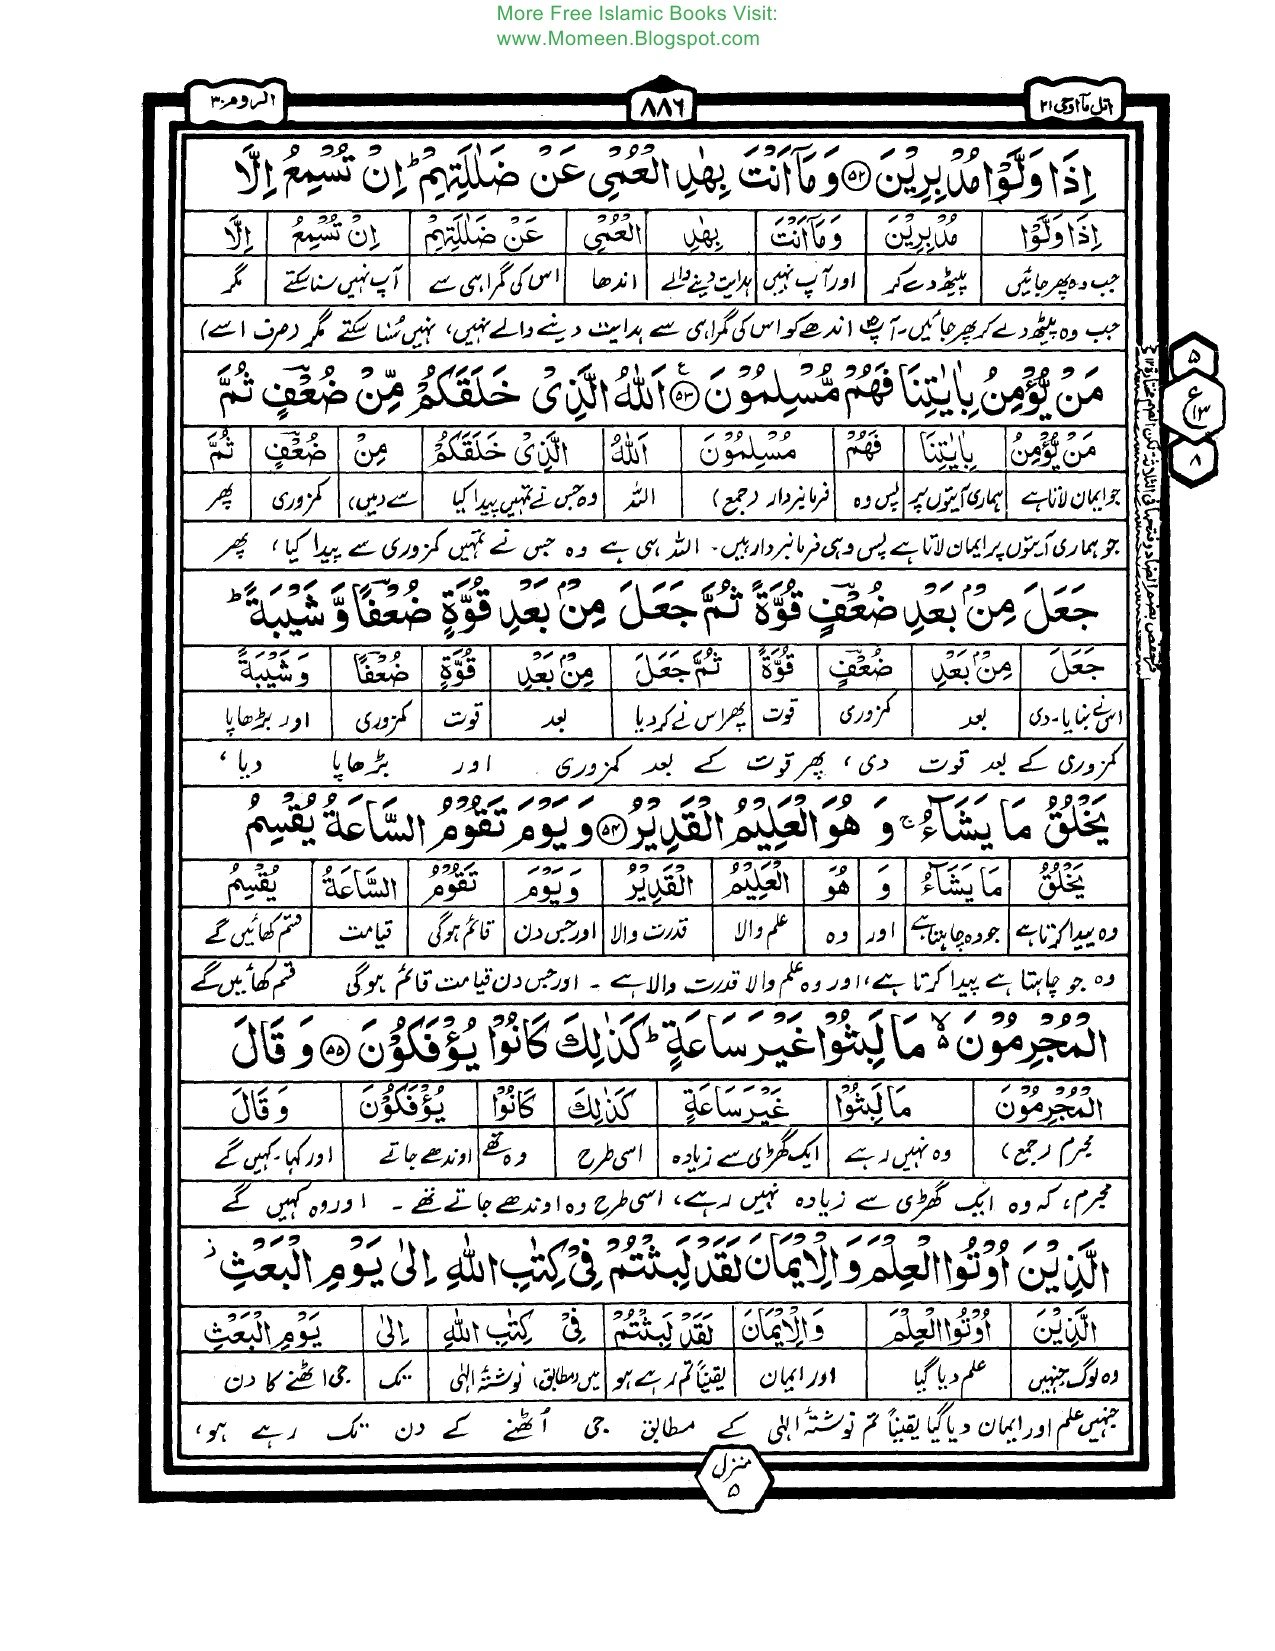 More Free Islamic Books Visit:
www.Momeen.Blogspot.com
اتل مآ اوحی ۲۱
۸۸۶
الروم ۳۰
اِذَا وَلَّوْا مُدْبِرِيْنَ ۝۵۲ وَمَاۤ اَنْتَ بِهٰدِ الْعُمْيِ عَنْ ضَلٰلَتِهِمْ ؕ اِنْ تُسْمِعُ اِلَّا
اِذَا وَلَّوْا مُدْبِرِيْنَ وَمَاۤ اَنْتَ بِهٰدِ الْعُمْيِ عَنْ ضَلٰلَتِهِمْ اِنْ تُسْمِعُ اِلَّا
جب وہ پھر جائیں پیٹھ دے کر اور آپ نہیں ہدایت دینے والے اندھا اس کی گمراہی سے آپ نہیں سنا سکتے مگر
جب وہ پیٹھ دے کر پھر جائیں۔ آپؐ اندھے کو اس کی گمراہی سے ہدایت دینے والے نہیں، نہیں سُنا سکتے مگر (صرف اسے)
مَنْ يُّؤْمِنُ بِاٰيٰتِنَا فَهُمْ مُّسْلِمُوْنَ ۝۵۳ ع اَللّٰهُ الَّذِيْ خَلَقَكُمْ مِّنْ ضُعْفٍ ثُمَّ
۵
ع ۱۳
۸
مَنْ يُّؤْمِنُ بِاٰيٰتِنَا فَهُمْ مُسْلِمُوْنَ اَللّٰهُ الَّذِيْ خَلَقَكُمْ مِنْ ضُعْفٍ ثُمَّ
جو ایمان لاتا ہے ہماری آیتوں پر پس وہ فرمانبردار (جمع) اللہ وہ جس نے تمہیں پیدا کیا سے (میں) کمزوری پھر
جو ہماری آیتوں پر ایمان لاتا ہے پس وہی فرمانبردار ہیں۔ اللہ ہی ہے وہ جس نے تمہیں کمزوری سے پیدا کیا، پھر
جَعَلَ مِنْۢ بَعْدِ ضُعْفٍ قُوَّةً ثُمَّ جَعَلَ مِنْۢ بَعْدِ قُوَّةٍ ضُعْفًا وَّ شَيْبَةً ؕ
جَعَلَ مِنْۢ بَعْدِ ضُعْفٍ قُوَّةً ثُمَّ جَعَلَ مِنْۢ بَعْدِ قُوَّةٍ ضُعْفًا وَّ شَيْبَةً
اس نے بنایا۔ دی بعد کمزوری قوت پھر اس نے کر دیا بعد قوت کمزوری اور بڑھاپا
کمزوری کے بعد قوت دی، پھر قوت کے بعد کمزوری اور بڑھاپا دیا،
يَخْلُقُ مَا يَشَآءُ ۚ وَ هُوَ الْعَلِيْمُ الْقَدِيْرُ ۝۵۴ وَ يَوْمَ تَقُوْمُ السَّاعَةُ يُقْسِمُ
يَخْلُقُ مَا يَشَآءُ وَ هُوَ الْعَلِيْمُ الْقَدِيْرُ وَ يَوْمَ تَقُوْمُ السَّاعَةُ يُقْسِمُ
وہ پیدا کرتا ہے جو وہ چاہتا ہے اور وہ علم والا قدرت والا اور جس دن قائم ہوگی قیامت قسم کھائیں گے
وہ جو چاہتا ہے پیدا کرتا ہے، اور وہ علم والا قدرت والا ہے ۔ اور جس دن قیامت قائم ہوگی قسم کھائیں گے
الْمُجْرِمُوْنَ ۙ مَا لَبِثُوْا غَيْرَ سَاعَةٍ ؕ كَذٰلِكَ كَانُوْا يُؤْفَكُوْنَ ۝۵۵ وَ قَالَ
الْمُجْرِمُوْنَ مَا لَبِثُوْا غَيْرَ سَاعَةٍ كَذٰلِكَ كَانُوْا يُؤْفَكُوْنَ وَ قَالَ
مجرم (جمع) وہ نہیں رہے ایک گھڑی سے زیادہ اسی طرح وہ تھے اوندھے جاتے اور کہا۔ کہیں گے
مجرم، کہ وہ ایک گھڑی سے زیادہ نہیں رہے، اسی طرح وہ اوندھے جاتے تھے ۔ اور وہ کہیں گے
الَّذِيْنَ اُوْتُوا الْعِلْمَ وَ الْاِيْمَانَ لَقَدْ لَبِثْتُمْ فِيْ كِتٰبِ اللّٰهِ اِلٰى يَوْمِ الْبَعْثِ ز
الَّذِيْنَ اُوْتُوا الْعِلْمَ وَ الْاِيْمَانَ لَقَدْ لَبِثْتُمْ فِيْ كِتٰبِ اللّٰهِ اِلٰى يَوْمِ الْبَعْثِ
وہ لوگ جنہیں علم دیا گیا اور ایمان یقیناً تم رہے ہو میں (مطابق) نوشتۂ الٰہی تک جی اٹھنے کا دن
جنہیں علم اور ایمان دیا گیا یقیناً تم نوشتۂ الٰہی کے مطابق جی اُٹھنے کے دن تک رہے ہو،
منزل ۵